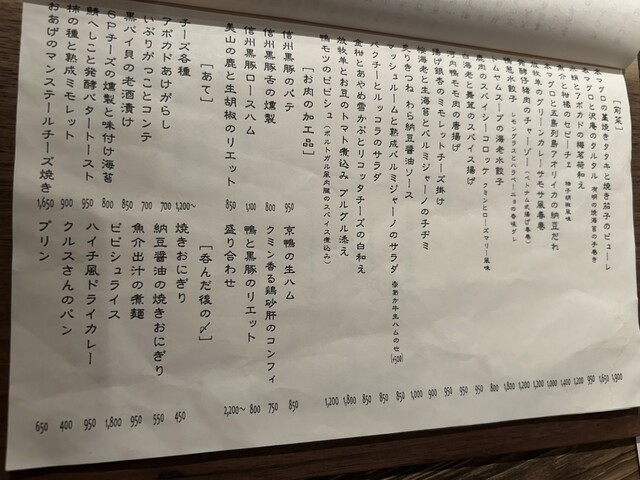 [前菜]
本マグロの藁焼きタタキと焼き茄子のピューレ 1,900
本マグロと沢庵のタルタル 有明の焼海苔の手巻き 1,650
魚介と柑橘のセビーチェ 柚子胡椒風味
本マグロと五島列島アオリイカの納豆だれ
放牧羊のグリーンカレーサモサ風春巻
発酵仔猪肉のチャージョー(ベトナム式揚げ春巻)
鴨葱水餃子 レモングラスとハラペーニョの香味ダレ
トムヤムスープの海老水餃子
鹿肉のスパイシーコロッケ クミンとローズマリー風味
白海老と舞茸のスパイス揚げ
河内鴨モモ肉の唐揚げ
揚げ銀杏のミモレットチーズ掛け
桜海老と生海苔とパルミジャーノのチヂミ
炙りきつね わら納豆醤油ソース
マッシュルームと熟成パルミジャーノのサラダ ※あか牛生ハムのせ(+500)
パクチーとルッコラのサラダ 850
金柑とあやめ雪かぶとリコッタチーズの白和え 850
放牧羊とお豆のトマト煮込み ブルグル添え 1,800
鴨モツのピピシュ(ポルトガル風内臓のスパイス煮込み) 1,200
[お肉の加工品]
信州黒豚のパテ 950
信州黒豚舌の燻製 800
信州黒豚ロースハム 1,100
美山の鹿と生胡椒のリエット 850
京鴨の生ハム 850
クミン香る鶏砂肝のコンフィ 750
鴨と黒豚のリエット 800
盛り合わせ 2,200〜
[あて]
チーズ各種 1,200〜
アボカドあけがらし 700
いぶりがっことコンテ 700
黒バイ貝の老酒漬け 850
6Pチーズの燻製と味付け海苔 800
鯖へしこと発酵バタートースト 950
柿の種と熟成ミモレット 900
おあげのマンステールチーズ焼き 1,650
[呑んだ後の〆]
焼きおにぎり 450
納豆醤油の焼きおにぎり 550
魚介出汁の煮麺 950
ピピシュライス 1,800
ハイチ風ドライカレー 950
クルスさんのパン 400
プリン 650